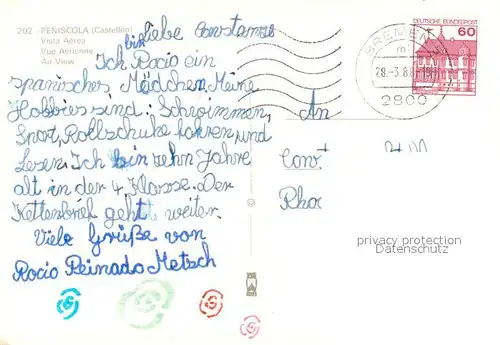 202 - PEÑISCOLA (Castellón)
Vista Aérea
Vue Aérienne
Air View
Liebe Constanze
Ich bin Rocio ein
spanisches Mädchen. Meine
Hobbies sind: Schwimmen,
Sport, Rollschuhe fahren, und
Lesen. Ich bin zehn Jahre
alt in der 4. Klasse. Der
Kettenbrief geht weiter.
Viele Grüße von
Rocio Peinado Metsch
BREMEN
28.-3.88
2800
DEUTSCHE BUNDESPOST
60
An
Con
Rha
privacy protection
Datenschutz